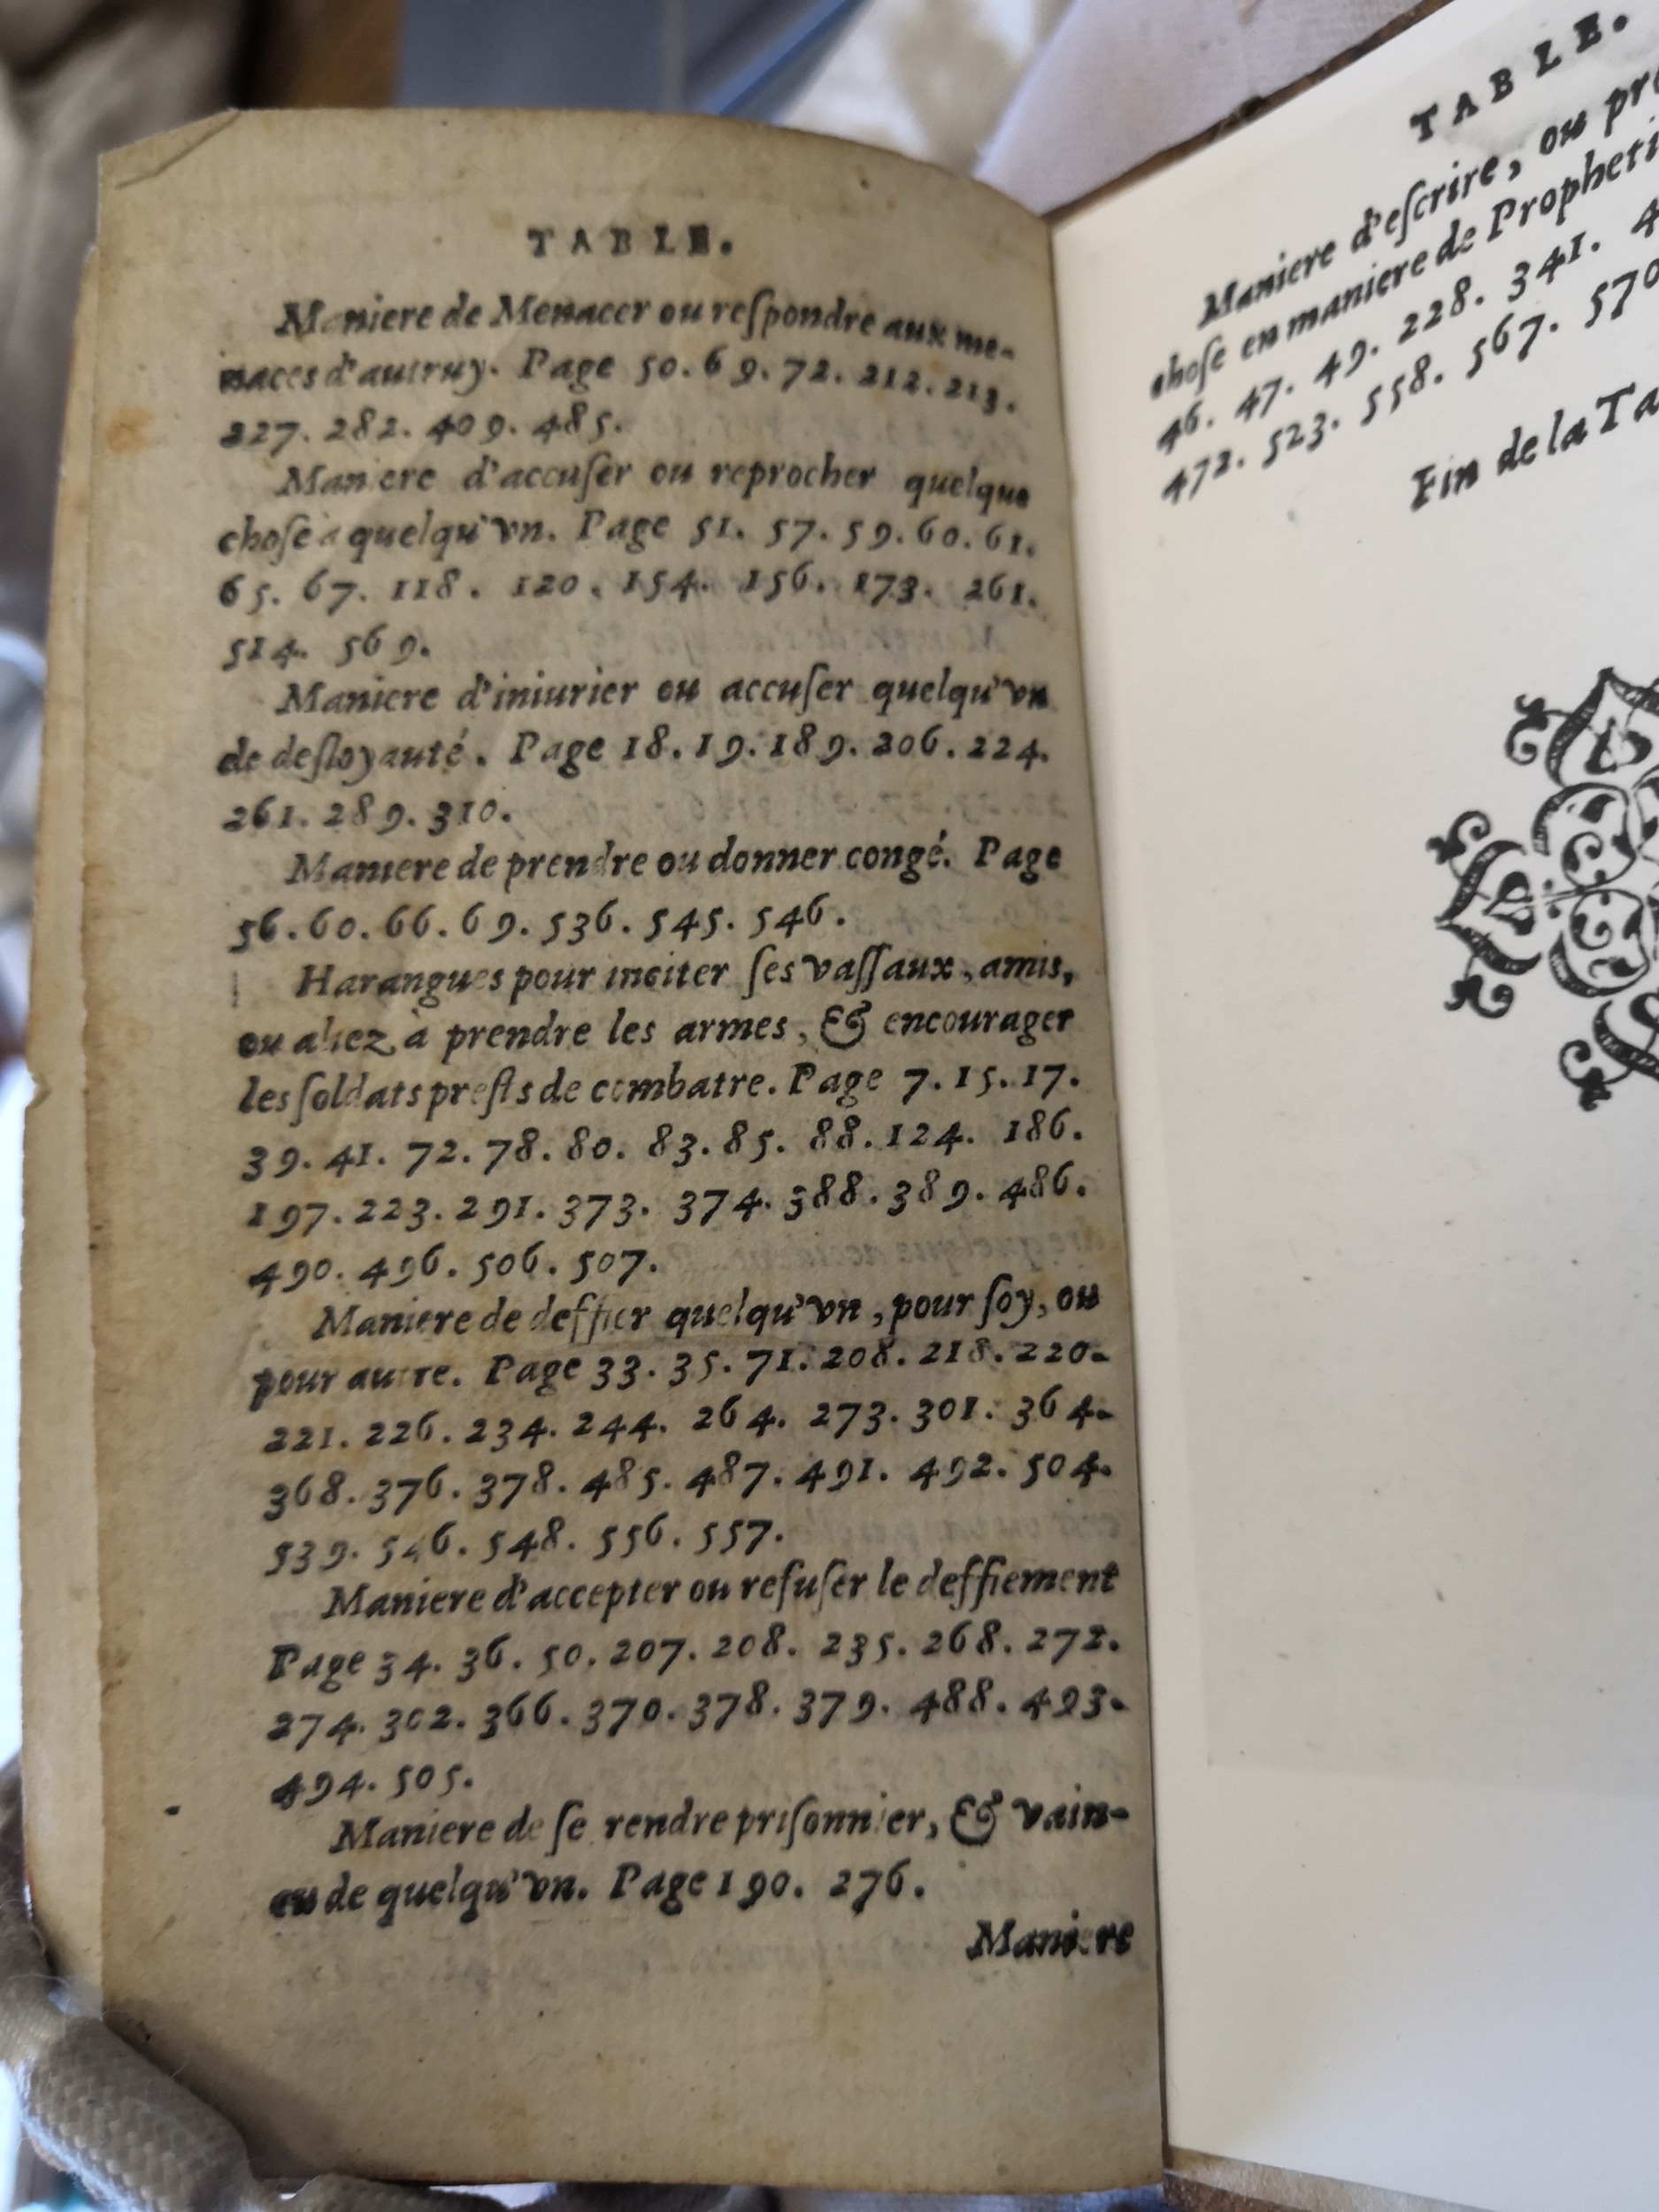 TABLE.
Maniere de Menacer ou reſpondre aux me-
naces d'autruy. Page 50. 69. 72. 212. 213.
227. 282. 409. 485.
Maniere d'accuſer ou reprocher quelque
choſe a quelqu'vn. Page 51. 57. 59. 60. 61.
65. 67. 118. 120. 154. 156. 173. 261.
514. 569.
Maniere d'iniurier ou accuſer quelqu'vn
de deſloyauté. Page 18. 19. 189. 206. 224.
261. 289. 310.
Maniere de prendre ou donner congé. Page
56. 60. 66. 69. 536. 545. 546.
Harangues pour inciter ſes vaſſaux, amis,
ou aliez à prendre les armes, & encourager
les ſoldats preſts de combatre. Page 7. 15. 17.
39. 41. 72. 78. 80. 83. 85. 88. 124. 186.
197. 223. 291. 373. 374. 388. 389. 486.
490. 496. 506. 507.
Maniere de deffier quelqu'vn, pour ſoy, ou
pour autre. Page 33. 35. 71. 208. 218. 220.
221. 226. 234. 244. 264. 273. 301. 364.
368. 376. 378. 485. 487. 491. 492. 504.
539. 546. 548. 556. 557.
Maniere d'accepter ou refuſer le deffiement
Page 34. 36. 50. 207. 208. 235. 268. 272.
274. 302. 366. 370. 378. 379. 488. 493.
494. 505.
Maniere de ſe rendre priſonnier, & vain-
cu de quelqu'vn. Page 190. 276.
Maniere
TABLE.
Maniere d'eſcrire, ou
choſe en maniere de
46. 47. 49. 228. 341.
472. 523. 558. 567.
Fin de la